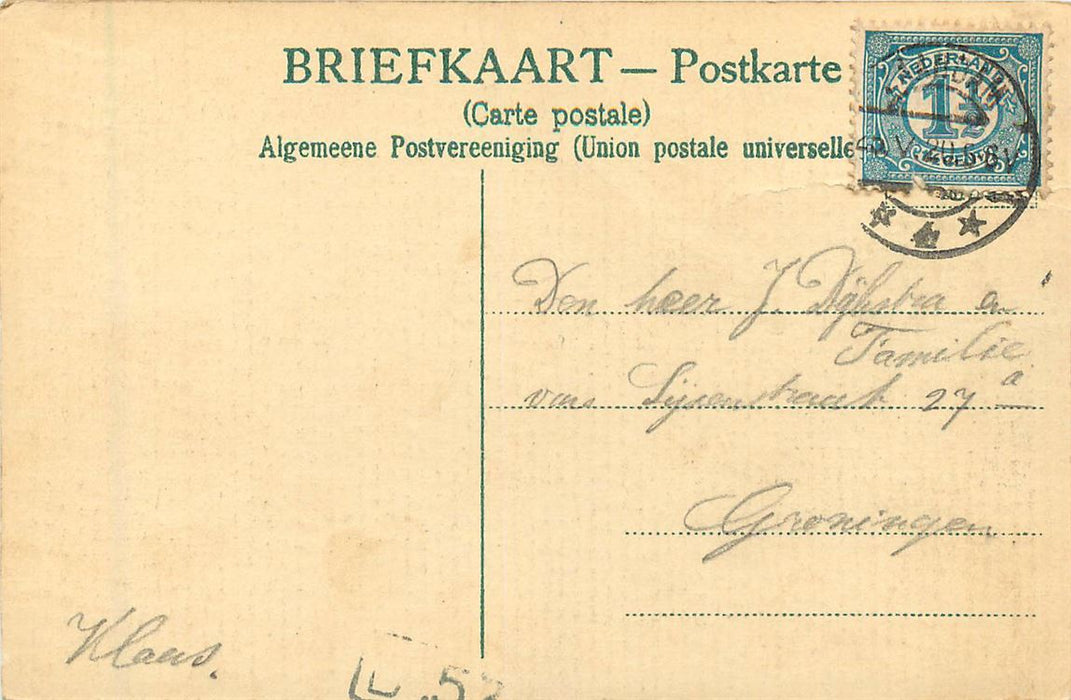 BRIEFKAART — Postkarte
(Carte postale)
Algemeene Postvereeniging (Union postale universelle
NEDERLAND
1½
Den heer J. Dijkstra en
Familie
27a
Groningen
Klaas.